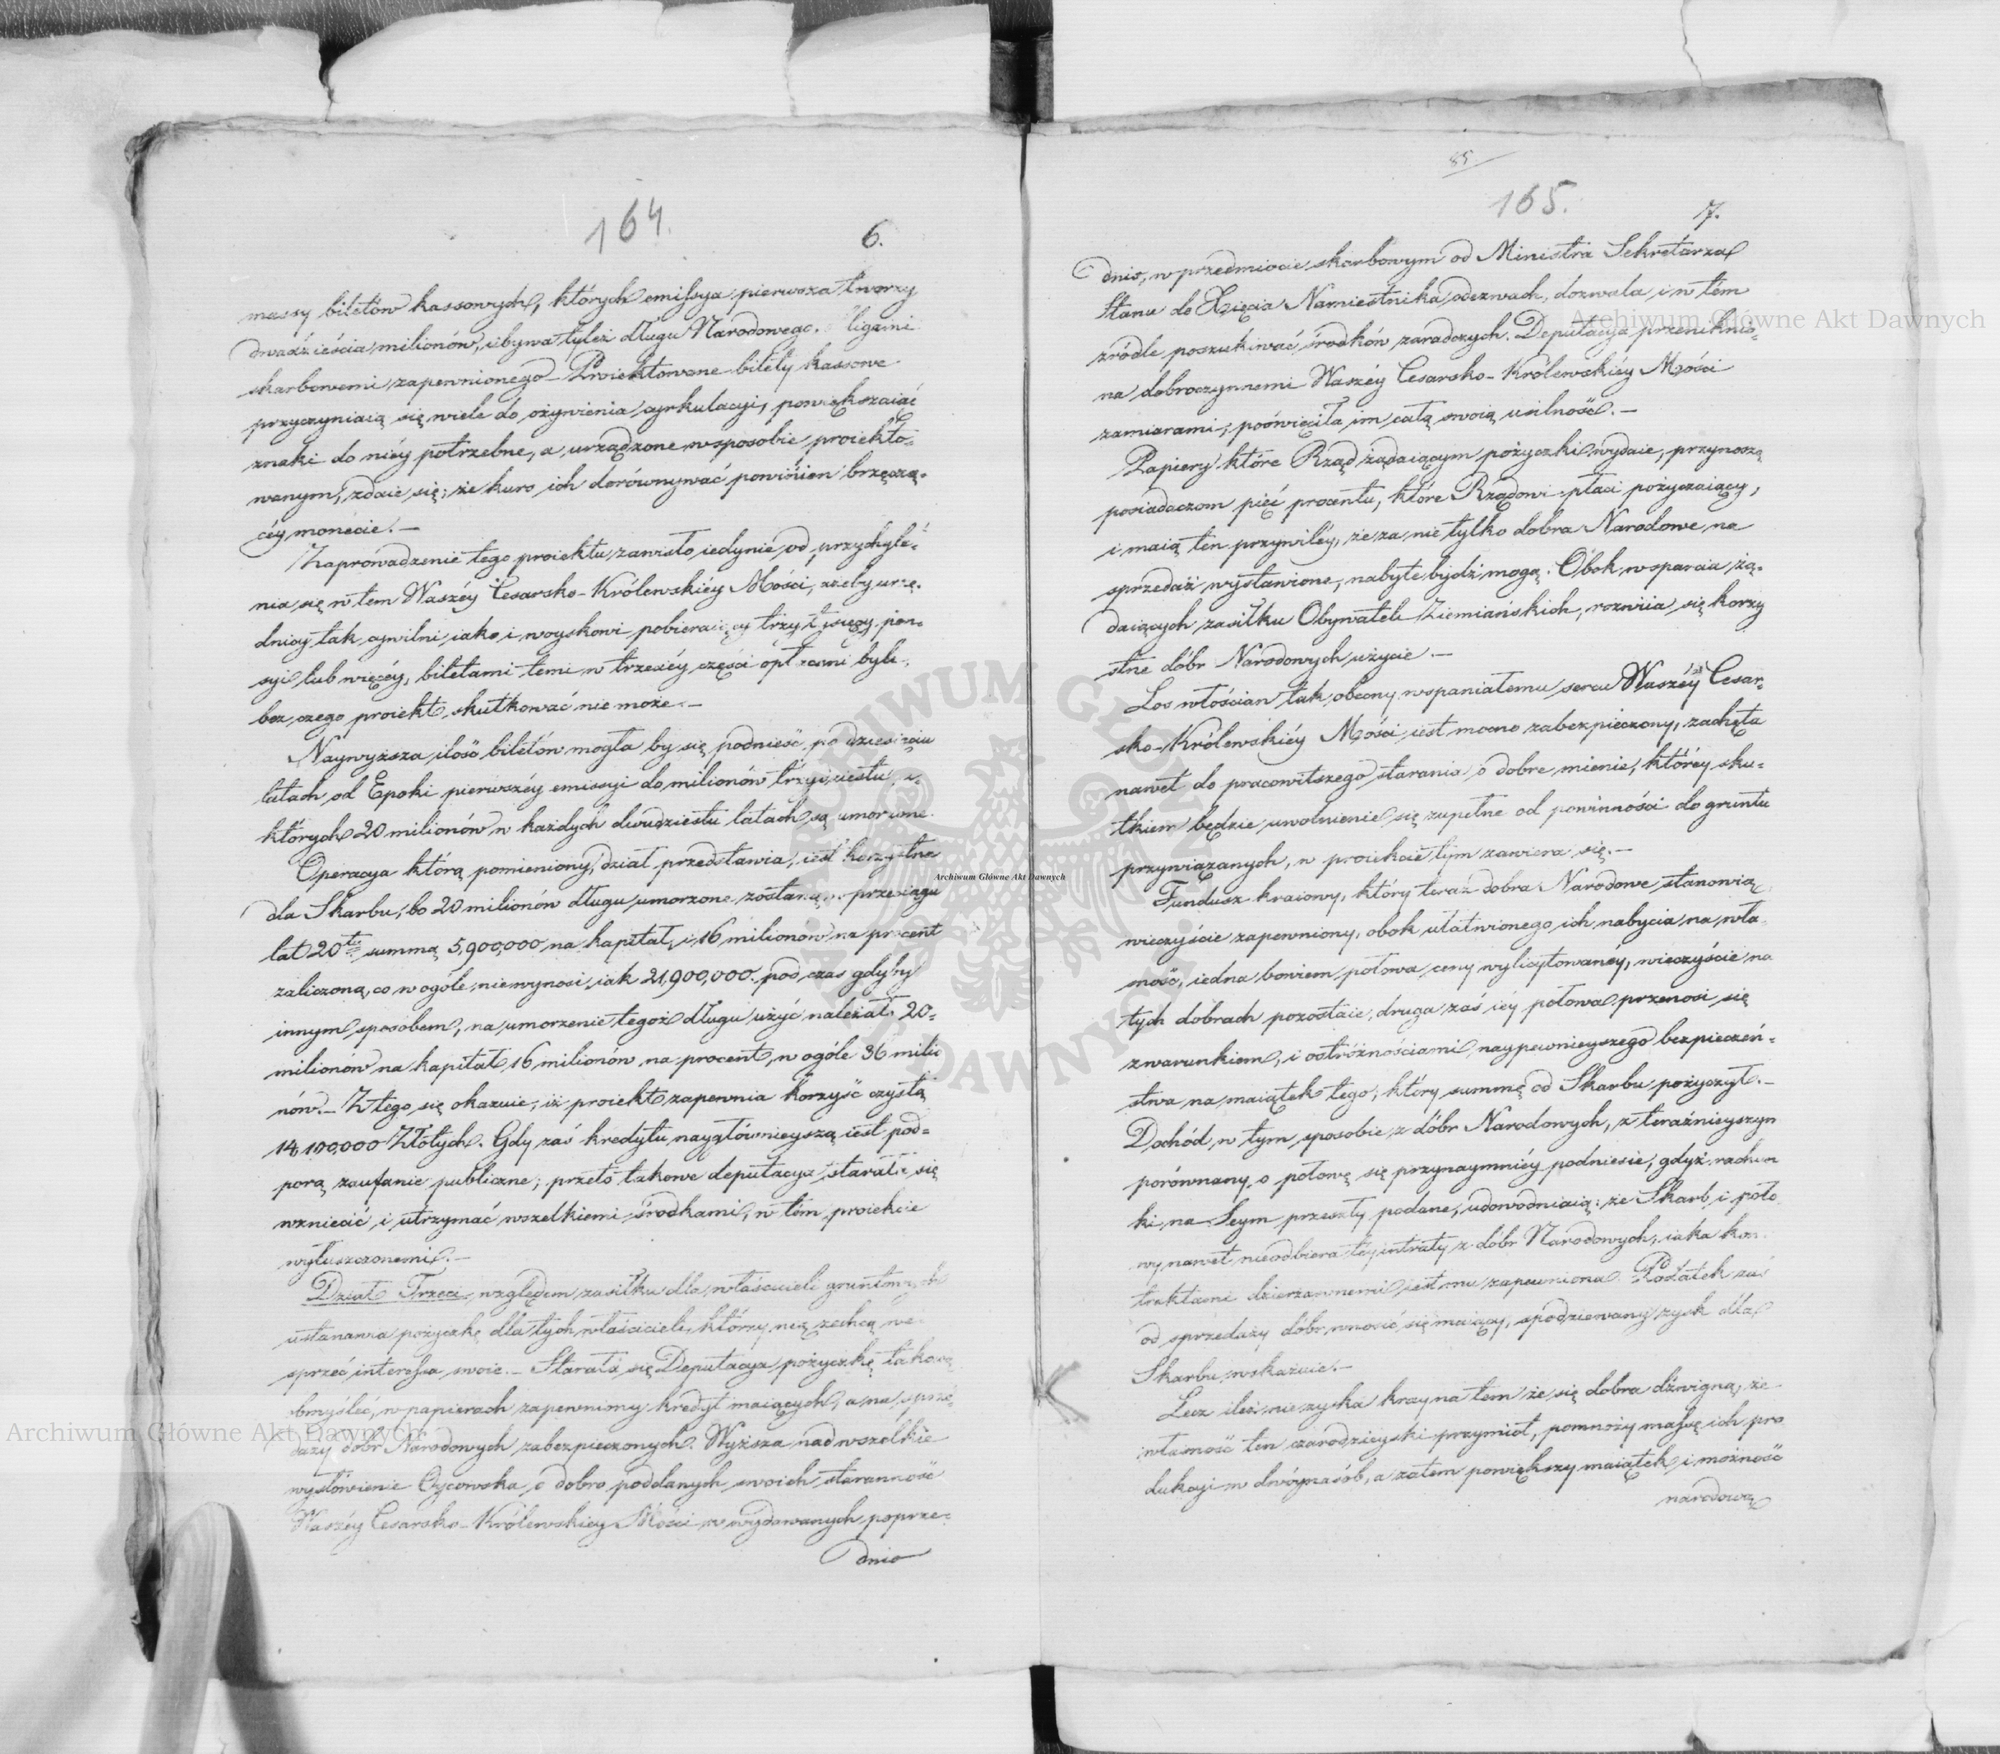 164.
6.
massy biletów kassowych, których emissya pierwsza tworzy
dwadzieścia milionów, ubywa tyleż długu Narodowego. ligami
skarbowemi zapewnionego – Proiektowane bilety kassowe
przyczyniaią się wiele do ożywienia cyrkulacyi, powiększaiąć
znaki do niéy potrzebne, a urządzone w sposobie proiekto-
wanym, zdaie się; że kurs ich dorównywać powinien brzęczą-
céy monecie. –
Zaprowadzenie tego proiektu zawisło iedynie od przychyle-
nia się w tem Waszéy Cesarsko-Królewskiéy Mości, ażeby urzę-
dnicy tak cywilni iako i woyskowi pobieraiący trzy tysięcy pen-
syi lub więcéy, biletami temi w trzeciéy części opłacani byli,
bez czego proiekt skutkować nie może. –
Naywyższa ilość biletów mogła by się podnieść po dziesięciu
latach od Epoki pierwszéy emissyi do milionów trzydziestu, z
których 20 milionów w każdych dwudziestu latach są umorzone.
Operacya którą pomieniony dział przedstawia, iest korzystna
dla Skarbu, bo 20 milionów długu umorzone zostaną w przeciągu
lat 20tu summą 5,900,000 na kapitał, i 16 milionów na procent
zaliczoną, co w ogóle niewynosi iak 21,900,000. pod czas gdyby
innym sposobem, na umorzenie tegoż długu użyć należało 20-
milionów na kapitał, 16 milionów na procent, w ogóle 36 milio
nów. – Z tego się okazuie, iż proiekt zapewnia korzyść czystą
14,100,000 Złotych. Gdy zaś kredytu naygłównieyszą iest pod-
porą zaufanie publiczne; przeto takowe deputacya starała się
wzniecić i utrzymać wszelkiemi środkami, w tém proiekcie
wyłuszczonemi. –
Dział Trzeci, względem zasiłku dla właścicieli gruntowych
ustanawia pożyczkę dla tych właścicieli, którzy nią zechcą we-
sprzeć interessa swoie. – Starała się Deputacya pożyczkę takową
obmyśleć, w papierach zapewniony kredyt maiących, a na sprze-
daży dóbr Narodowych zabezpieczonych. Wyższa nad wszelkie
wysłowienie Oycowska o dobro poddanych swoich staranność
Waszéy Cesarsko-Królewskiey Mości w wydawanych poprze-
dnio
85
165.
7.
dnio, w przedmiocie skarbowym od Ministra Sekretarza
Stanu do Xięcia Namiestnika odezwach, dozwala i w tem
źródle poszukiwać środków zaradczych. Deputacya przeniknio-
na dobroczynnemi Waszéy Cesarsko-Królewskiéy Mości
zamiarami, poświęciła im całą swoią usilność. –
Papiery które Rząd żądaiącym pożyczki wydaie, przynoszą
posiadaczom pięć procentu, które Rządowi płaci pożyczaiący,
i maią ten przywiléy, że za nie tylko dobra Narodowe na
sprzedaż wystawione, nabyte bydź mogą. Obok wsparcia żą-
daiących zasiłku Obywateli Ziemiańskich, rozwiia się korzy
stne dóbr Narodowych użycie. –
Los włościan tak obecny wspaniałemu sercu Waszéy Cesar-
sko-Królewskiéy Mości iest mocno zabezpieczony, zachęta
nawet do pracowitszego starania o dobre mienie, któréy sku-
tkiem będzie uwolnienie się zupełne od powinności do gruntu
przywiązanych, w proiekcie tym zawiera się. –
Fundusz kraiowy, który teraz dobra Narodowe stanowią
wieczyście zapewniony, obok ułatwionego ich nabycia na wła
sność, iedna bowiem połowa ceny wylicytowanéy, wieczyście na
tych dobrach pozostaie, druga zaś iéy połowa przenosi się
z warunkiem, i ostrożnościami naypewnieyszego bezpieczeń-
stwa na maiątek tego, który summę od Skarbu pożyczył. –
Dochód w tym sposobie z dóbr Narodowych, z teraźnieyszym
porównany, o połowę się przynaymniéy podniesie, gdyż rachun
ki na Seym przeszły podane, udowodniaią: że Skarb i poło
wy nawet nieodbiera téy intraty z dóbr Narodowych, iaka kon
traktami dzierżawnemi iest mu zapewniona. Podatek zaś
od sprzedaży dóbr wnosić się maiący, spodziewany zysk dla
Skarbu wskazuie. –
Lecz ileż nie zyska kray na tem że się dobra dźwigną, że
własność ten czarodzieyski przymiot, pomnoży massę ich pro
dukcyi w dwóynasób, a zatem powiększy maiątek i możność
narodową
Archiwum Główne Akt Dawnych
Archiwum Główne Akt Dawnych
Archiwum Główne Akt Dawnych